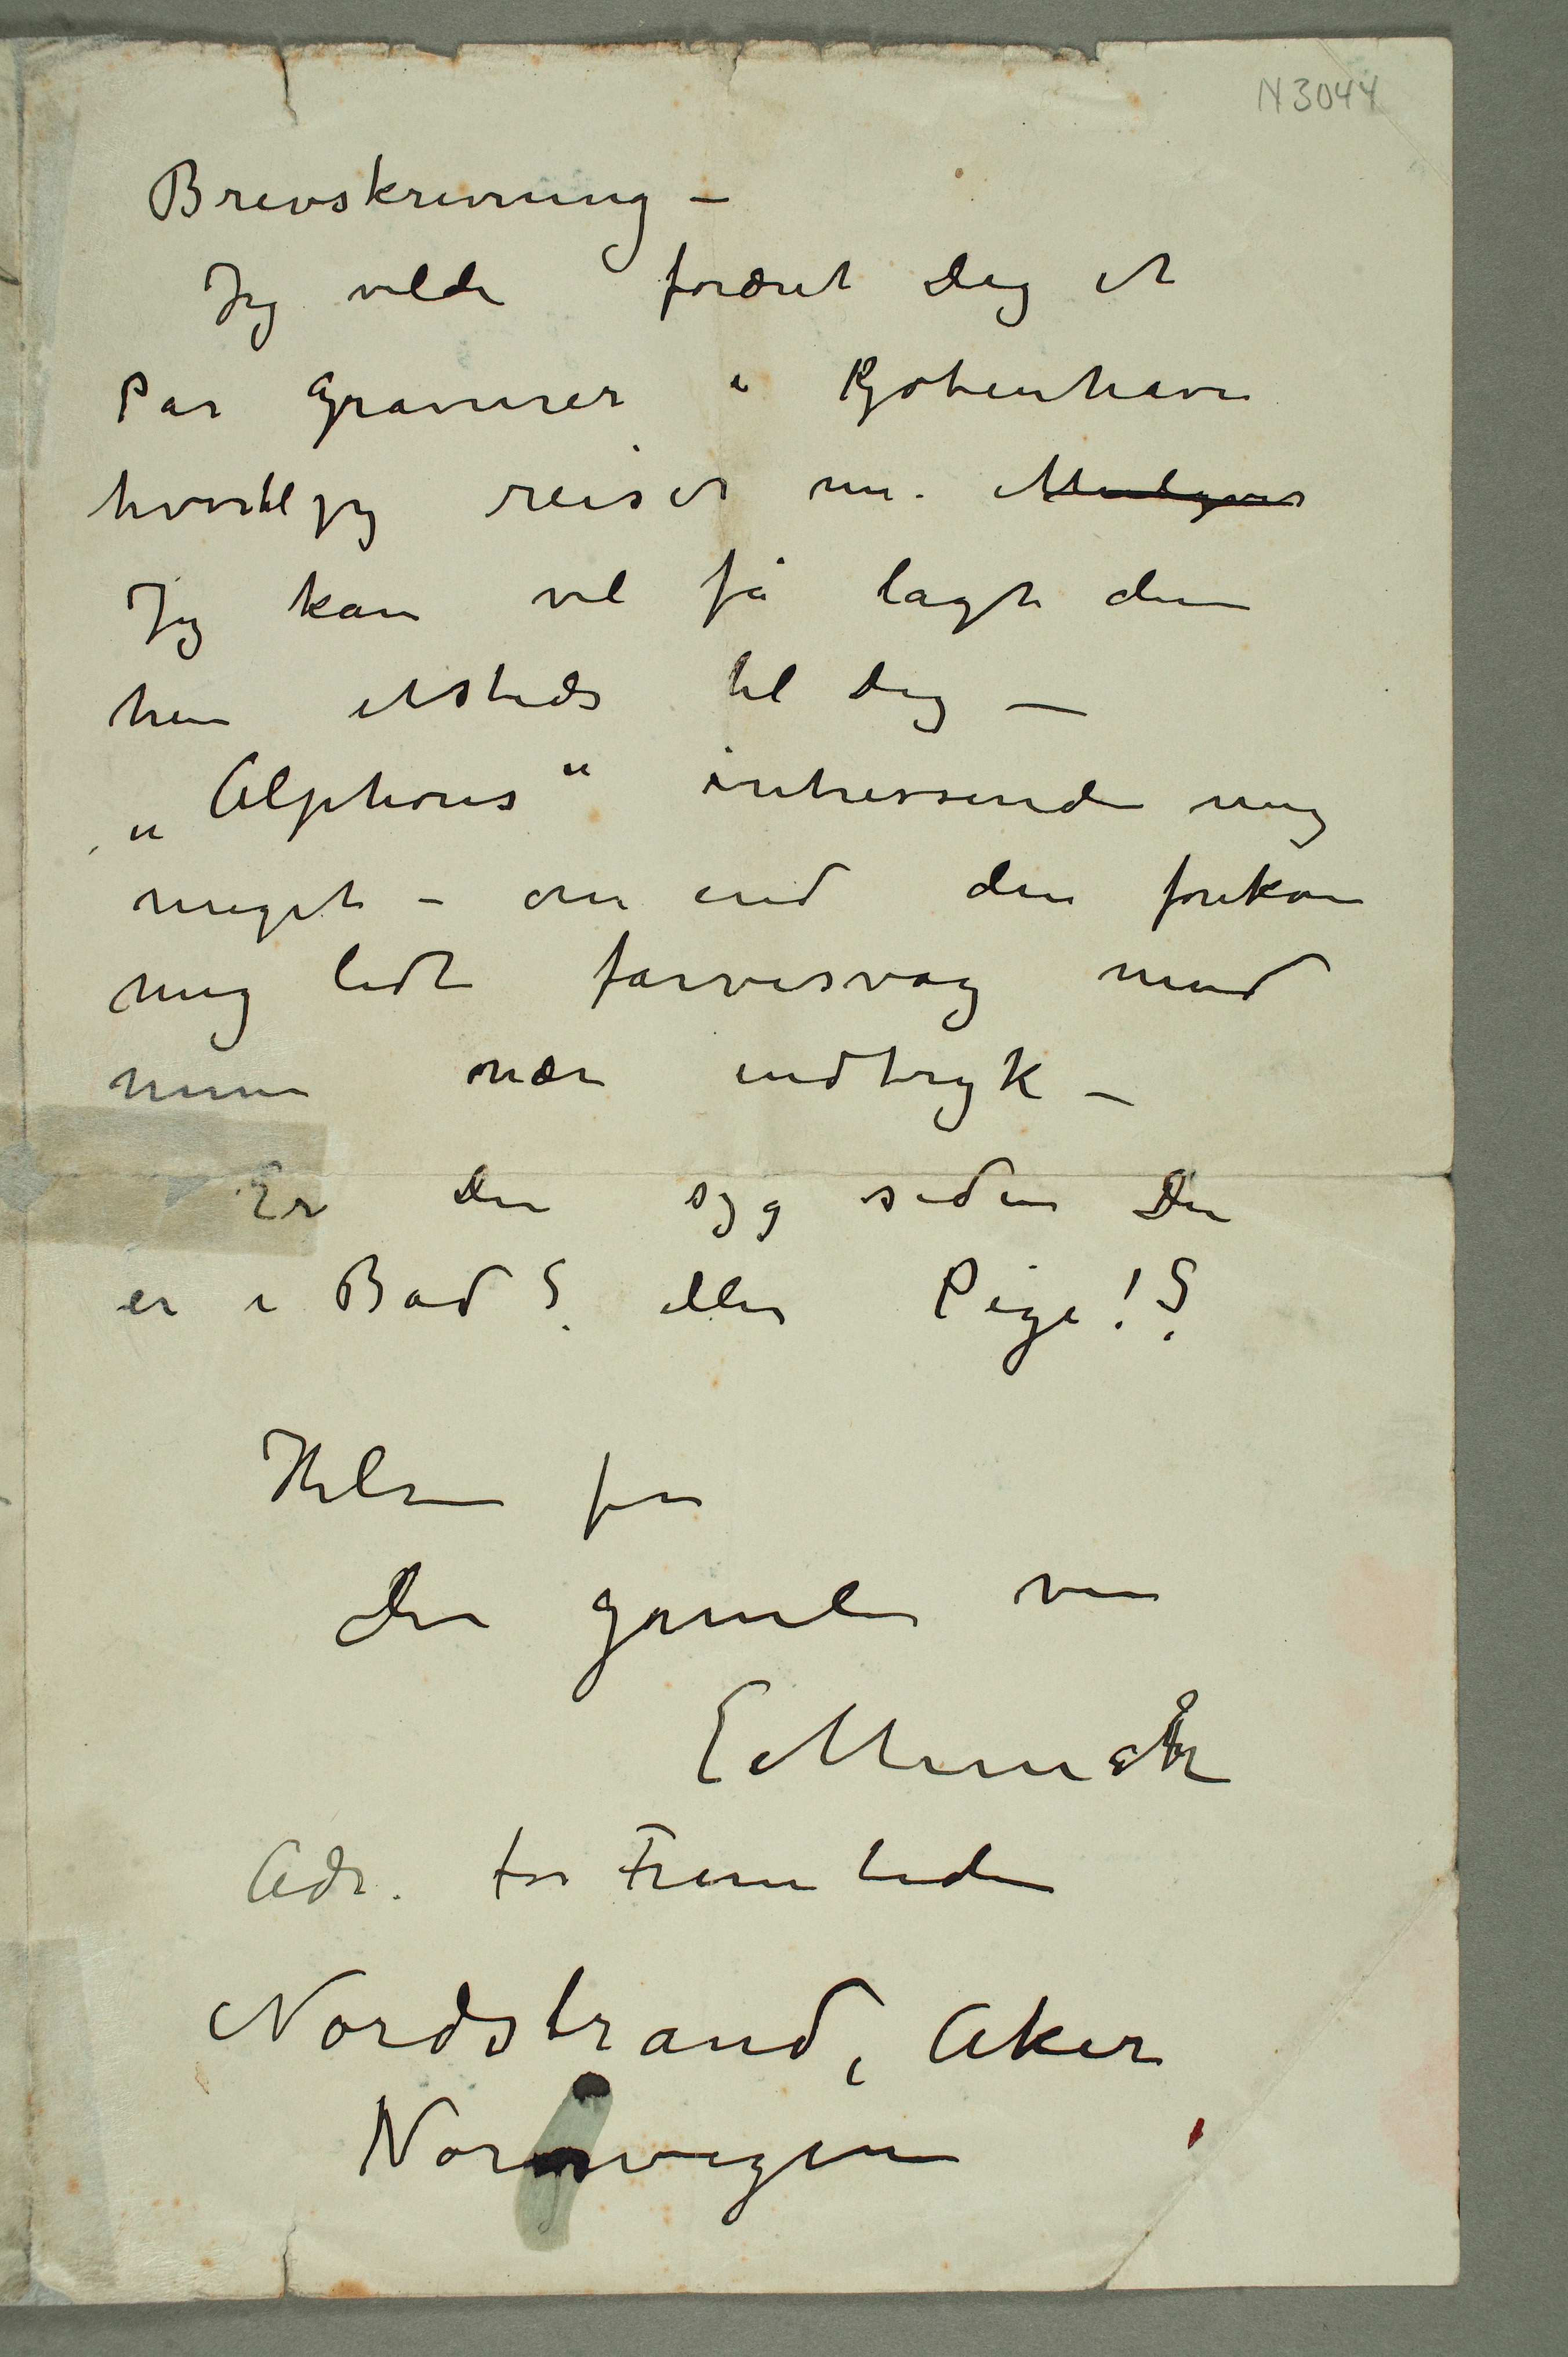 N 3044
Brevskrivning –
Jeg vilde foræret Dig et
Par Gravurer i Kjøbenhavn
hvortil jeg reiser nu. Muligvis
Jeg kan vel få lagt dem
hen etsteds til Dig –
„Alphons“ intresserede mig
meget – om end den forekom
mig lidt farvesvag mod
mine nær indtryk –
Er Du syg siden Du
er i Bad? eller Pige!?
Hilsen fra
din gamle ven
E Munch
Adr. for Fremtiden
Nordstrand, Aker
Norwegen